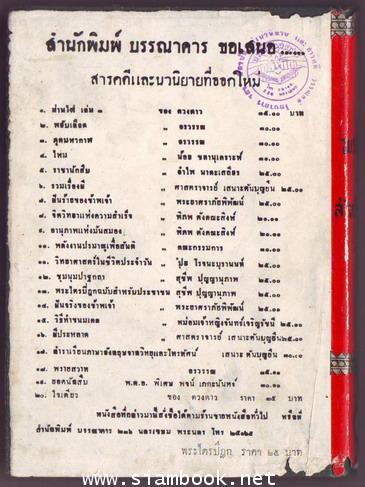 สำนักพิมพ์ บรรณาคาร ขอเสนอ......
สารคดีและนวนิยายที่ออกใหม่
๑. ม่านไฟ เล่ม ๑ ของ ดวงดาว ๓๕.๐๐ บาท
๒. พลับเลือด " อรวรรณ ๓๐.๐๐
๓. คุณมหากาฬ " อรวรรณ ๓๐.๐๐
๔. ไหม " น้อย ชลานุเคราะห์ ๓๐.๐๐
๕. ราชานักสืบ " อำไพ นาคะเสถียร ๒๕.๐๐
๖. รวมเรื่องผี " ศาสตราจารย์ เสนาะ ตันบุญยืน ๒๕.๐๐
๗. สันร้ายของข้าพเจ้า " พระยาอรรถภัยพิพัฒน์ ๒๕.๐๐
๘. จิตวิทยาแห่งความสำเร็จ " พิภพ ตังคณะสิงห์ ๒๐.๐๐
๙. อานุภาพแห่งมันสมอง " พิภพ ตังคณะสิงห์ ๒๐.๐๐
๑๐. พลังงานปรมาณูเพื่อสันติ " คณะกรรมการ ๓๐.๐๐
๑๑. วิทยาศาสตร์ในชีวิตประจำวัน " ปุ๋ย โรจนะบุรานนท์ ๒๕.๐๐
๑๒. ชุมนุมปาฐกถา " สุชีพ ปุญญานุภาพ ๒๕.๐๐
๑๓. พระไตรปิฎกฉบับสำหรับประชาชน สุชีพ ปุญญานุภาพ ๒๕.๐๐
๑๔. ของข้าพเจ้า " ๒๕.๐๐
๑๕. วิธีทำขนมเค็ก " หม่อมเจ้าหญิงจันทร์เจริญรัชนี ๒๕.๐๐
๑๖. ผีประหลาด " ศาสตราจารย์ เสนาะ ตันบุญยืน ๒๕.๐๐
๑๗. ตำราเรียนภาษาอังกฤษจากวิทยุและโทรทัศน์ เสนาะ ตันบุญยืน ๓๐.๐๐
๑๘. พรายสวาท อรวรรณ ๔๕.๐๐
๑๙. ยอดนักสืบ พ.ต.อ. พิเศษ พจน์ เภกะนันทน์ ๓๐.๐๐
๒๐. ใจเดียว ของ ดวงดาว ราคา ๓๕ บาท
หนังสือที่กล่าวมานี้สั่งซื้อได้ตามร้านขายหนังสือทั่วไป หรือที่
สำนักพิมพ์ บรรณาคาร ๒๓๖ นครเขษม พระนคร โทร ๒๕๖๒๕
พระไตรปิฎก ราคา ๒๕ บาท
www.siambook.net